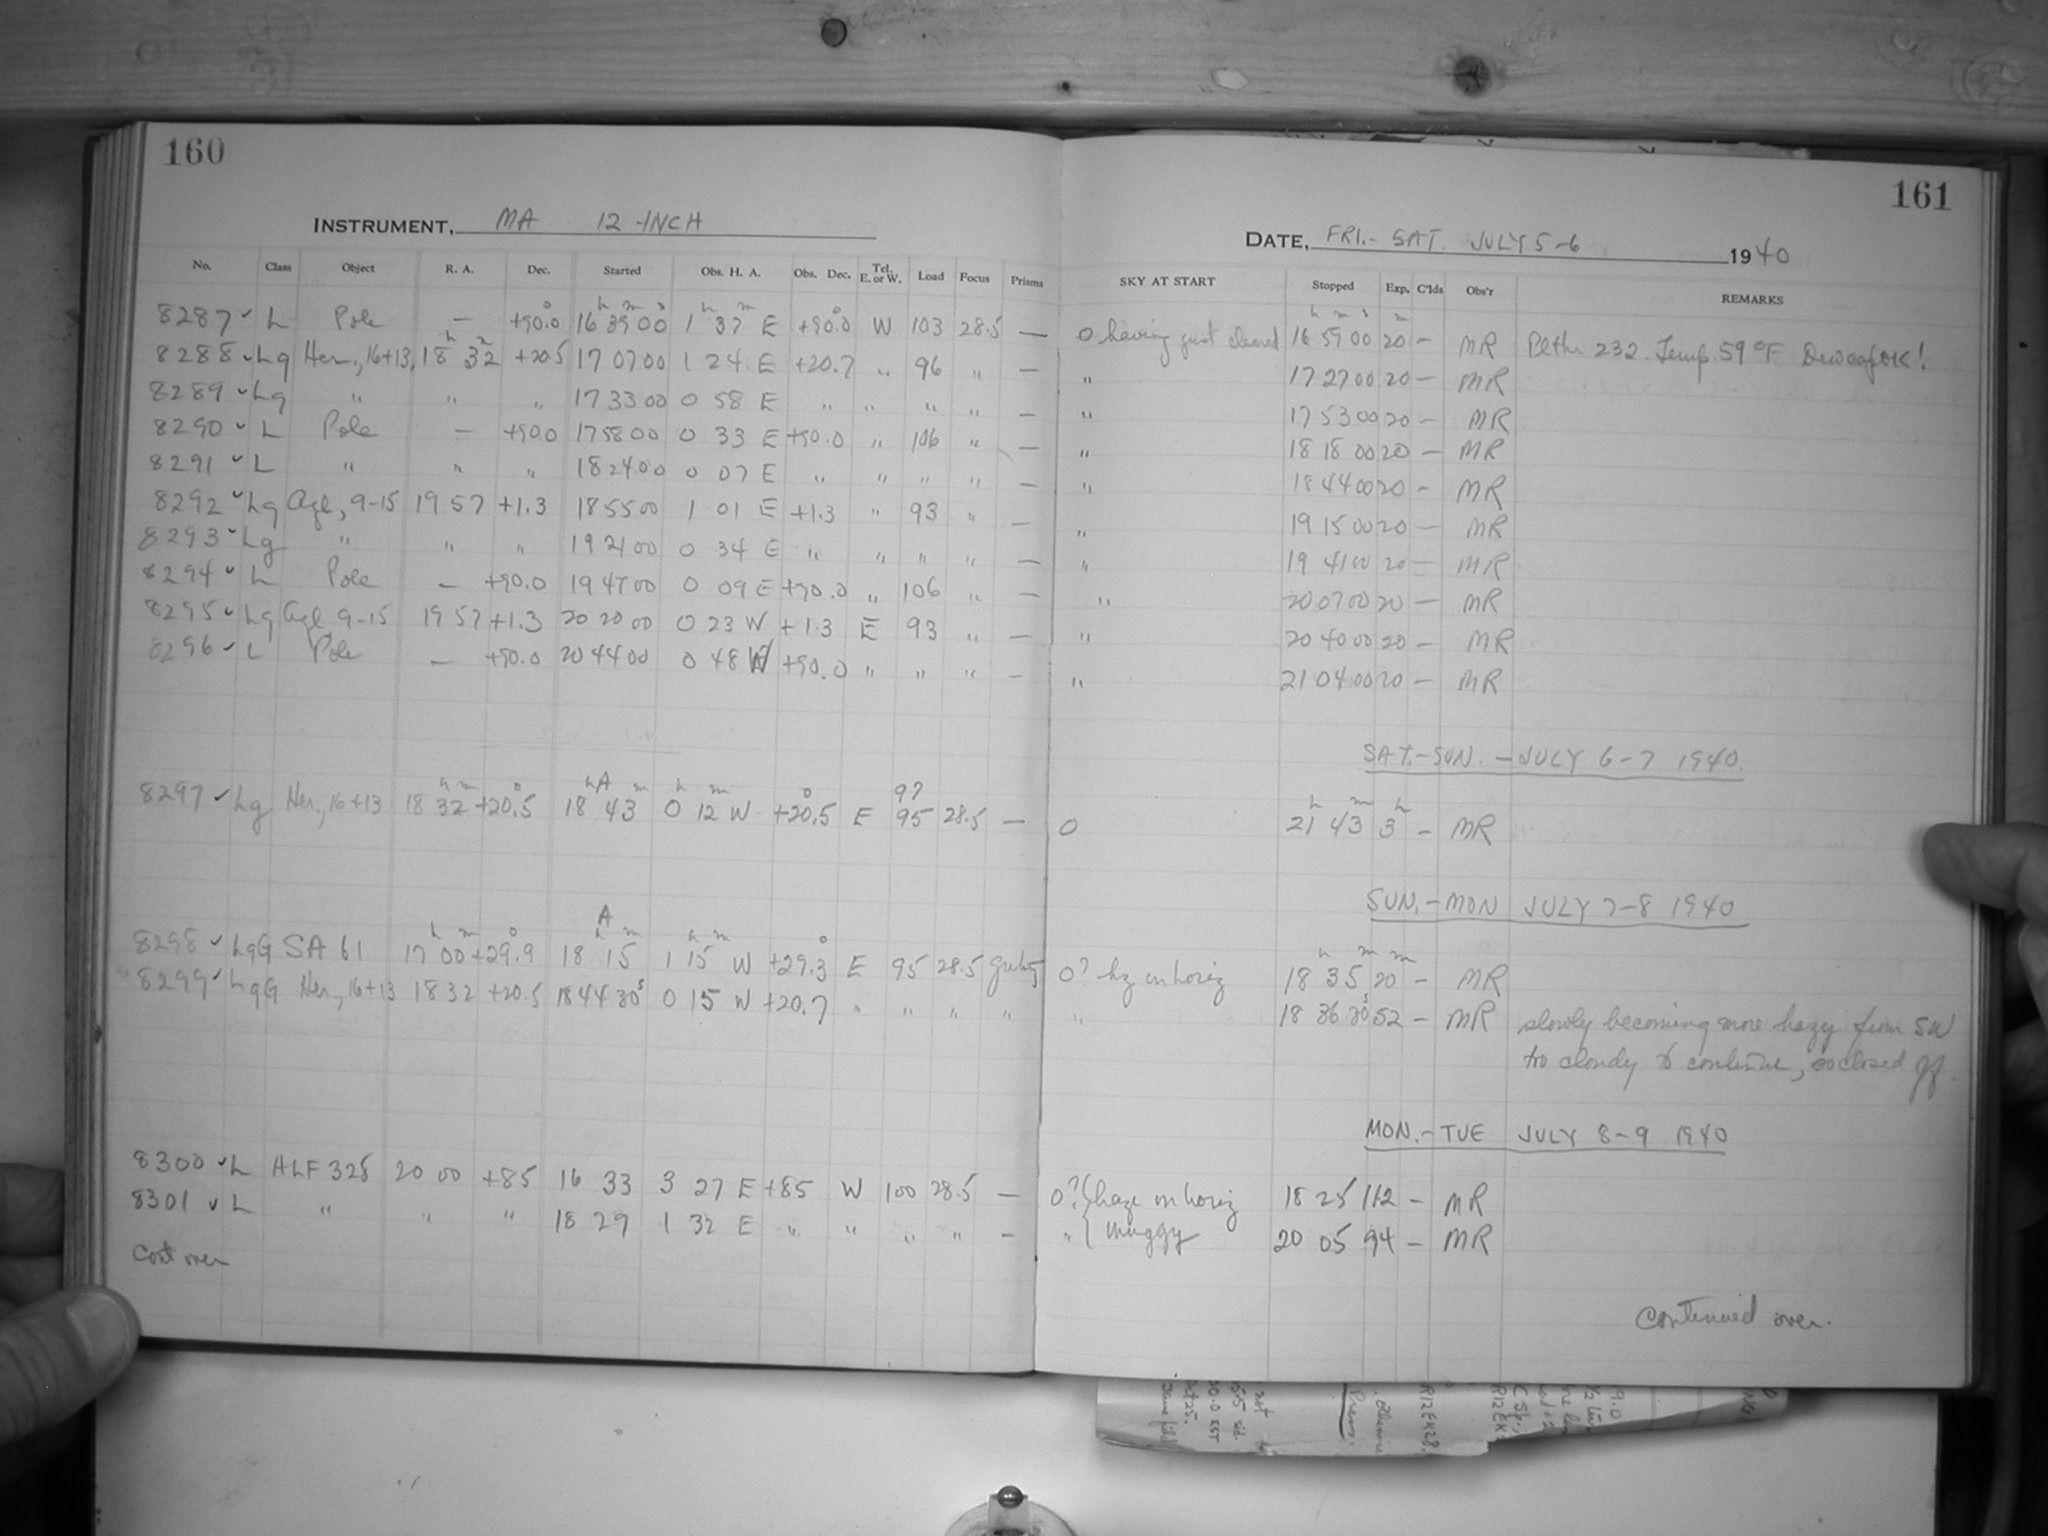 160
161
INSTRUMENT, MA 12-INCH
DATE, FRI.- SAT. JULY 5-6 1940
No. Class Object R. A. Dec. Started Obs. H. A. Obs. Dec. Tel. E. or W. Load Focus Prisms SKY AT START Stopped Exp. C'lds Obs'r REMARKS
8287 ✓ L Pole — +90.0 16 39 00 1 37 E +90.0 W 103 28.5 — 0 having just cleared 16 59 00 20 — MR Temp. 59°F
8288 ✓ Lg Her., 16+13, 18 32 +20.5 17 07 00 1 24 E +20.7 " 96 " — " 17 27 00 20 — MR
8289 ✓ Lg " " " 17 33 00 0 58 E " " " " — " 17 53 00 20 — MR
8290 ✓ L Pole — +90.0 17 58 00 0 33 E +90.0 " 106 " — " 18 18 00 20 — MR
8291 ✓ L " " " 18 24 00 0 07 E " " " " — " 18 44 00 20 — MR
8292 ✓ Lg Aql, 9-15 19 57 +1.3 18 55 00 1 01 E +1.3 " 93 " — " 19 15 00 20 — MR
8293 ✓ Lg " " " 19 21 00 0 34 E " " " " — " 19 41 00 20 — MR
8294 ✓ L Pole — +90.0 19 47 00 0 09 E +90.0 " 106 " — " 20 07 00 20 — MR
8295 ✓ Lg Aql 9-15 19 57 +1.3 20 20 00 0 23 W +1.3 E 93 " — " 20 40 00 20 — MR
8296 ✓ L Pole — +90.0 20 44 00 0 48 W +90.0 " " " — " 21 04 00 20 — MR
SAT.-SUN. — JULY 6-7 1940.
97
8297 ✓ Lg Her., 16+13 18 32 +20.5 18 43 0 12 W +20.5 E 95 28.5 — 0 21 43 3h — MR
SUN.-MON JULY 7-8 1940
8298 ✓ LgG SA 61 17 00 +29.9 18 15 1 15 W +29.3 E 95 28.5 0? hz on horiz 18 35 20 — MR
8299 ✓ LgG Her., 16+13 18 32 +20.5 18 44 30s 0 15 W +20.7 " " " " " 18 36 30s 52 — MR slowly becoming more hazy from SW
too cloudy to continue, so closed up
MON.-TUE JULY 8-9 1940
8300 ✓ L ALF 328 20 00 +85 16 33 3 27 E +85 W 100 28.5 — 0? haze on horiz 18 25 112 — MR
8301 ✓ L " " " 18 29 1 32 E " " " " — " muggy 20 05 94 — MR
Cont over
Continued over.